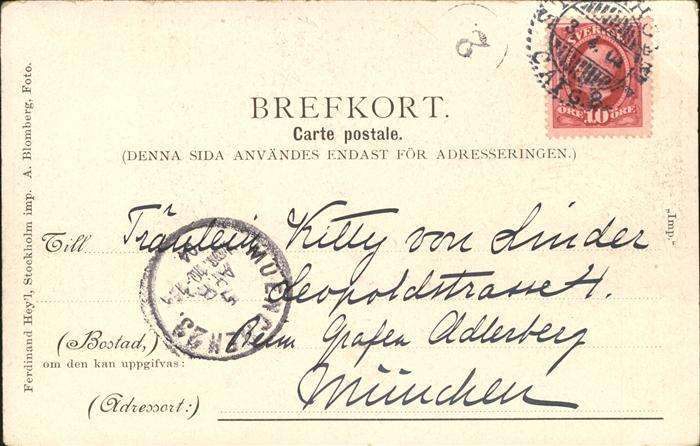 BREFKORT.
Carte postale.
(DENNA SIDA ANVÄNDES ENDAST FÖR ADRESSERINGEN.)
SVERIGE
ÖRE 10 ÖRE
2
Till Fräulein Kitty von Linder
Leopoldstrasse 4.
(Bostad,) Beim Grafen Adlerberg
om den kan uppgifvas:
(Adressort:) München
MUENCHEN 23.
5 APR
Ferdinand Hey'l, Stockholm imp. A. Blomberg, Foto.
„Imp."